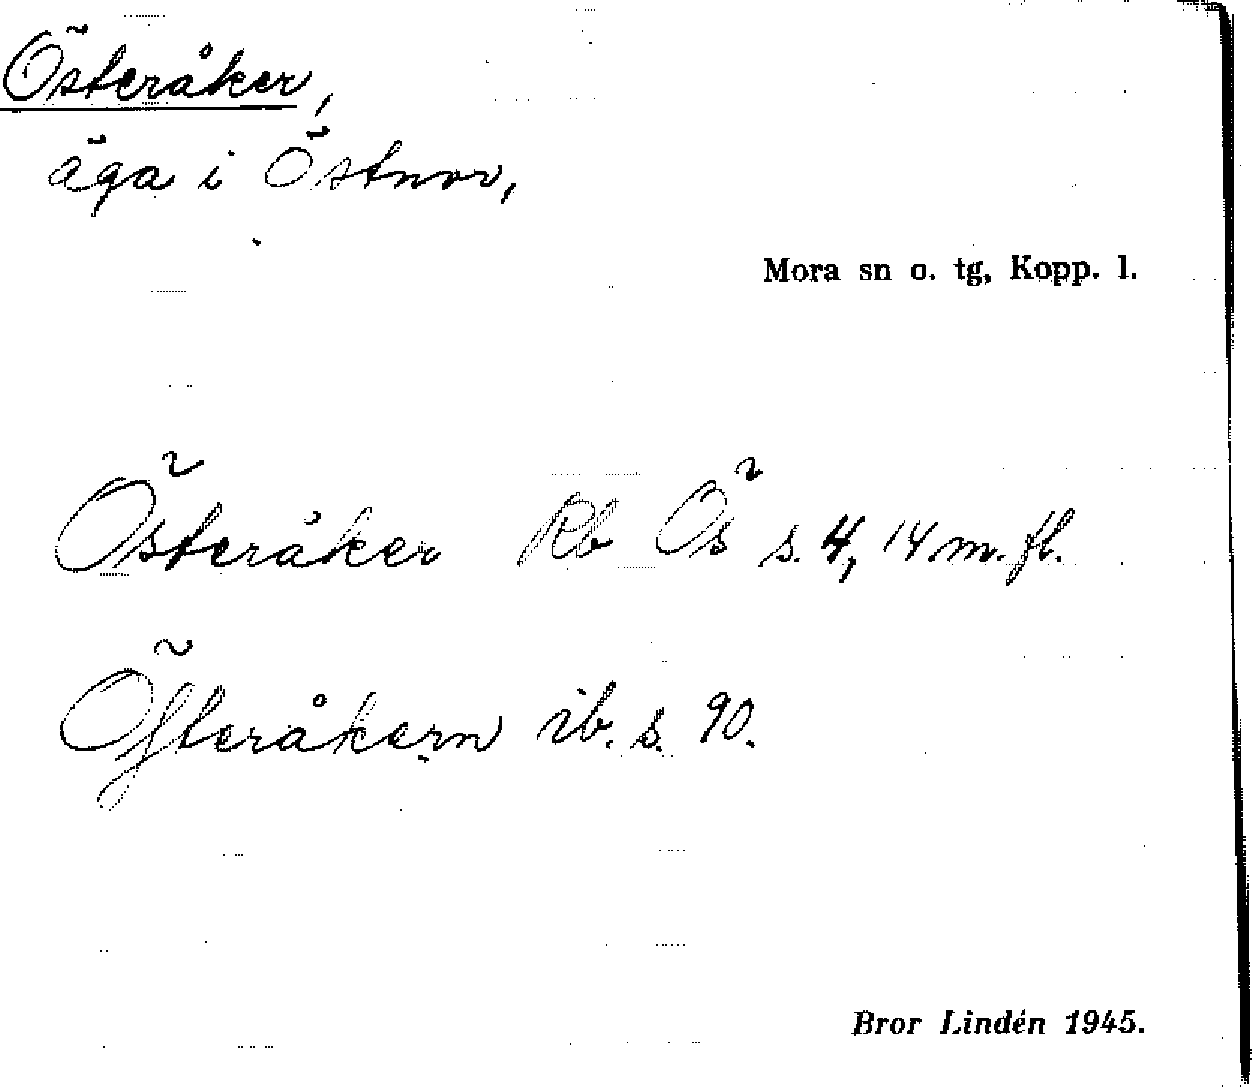 Österåker,
äga i Östnor,
Mora sn o. tg, Kopp. l.
Österåker Rb Ös s. 4, 14 m. fl.
Öfteråkern ib. s. 90.
Bror Lindén 1945.